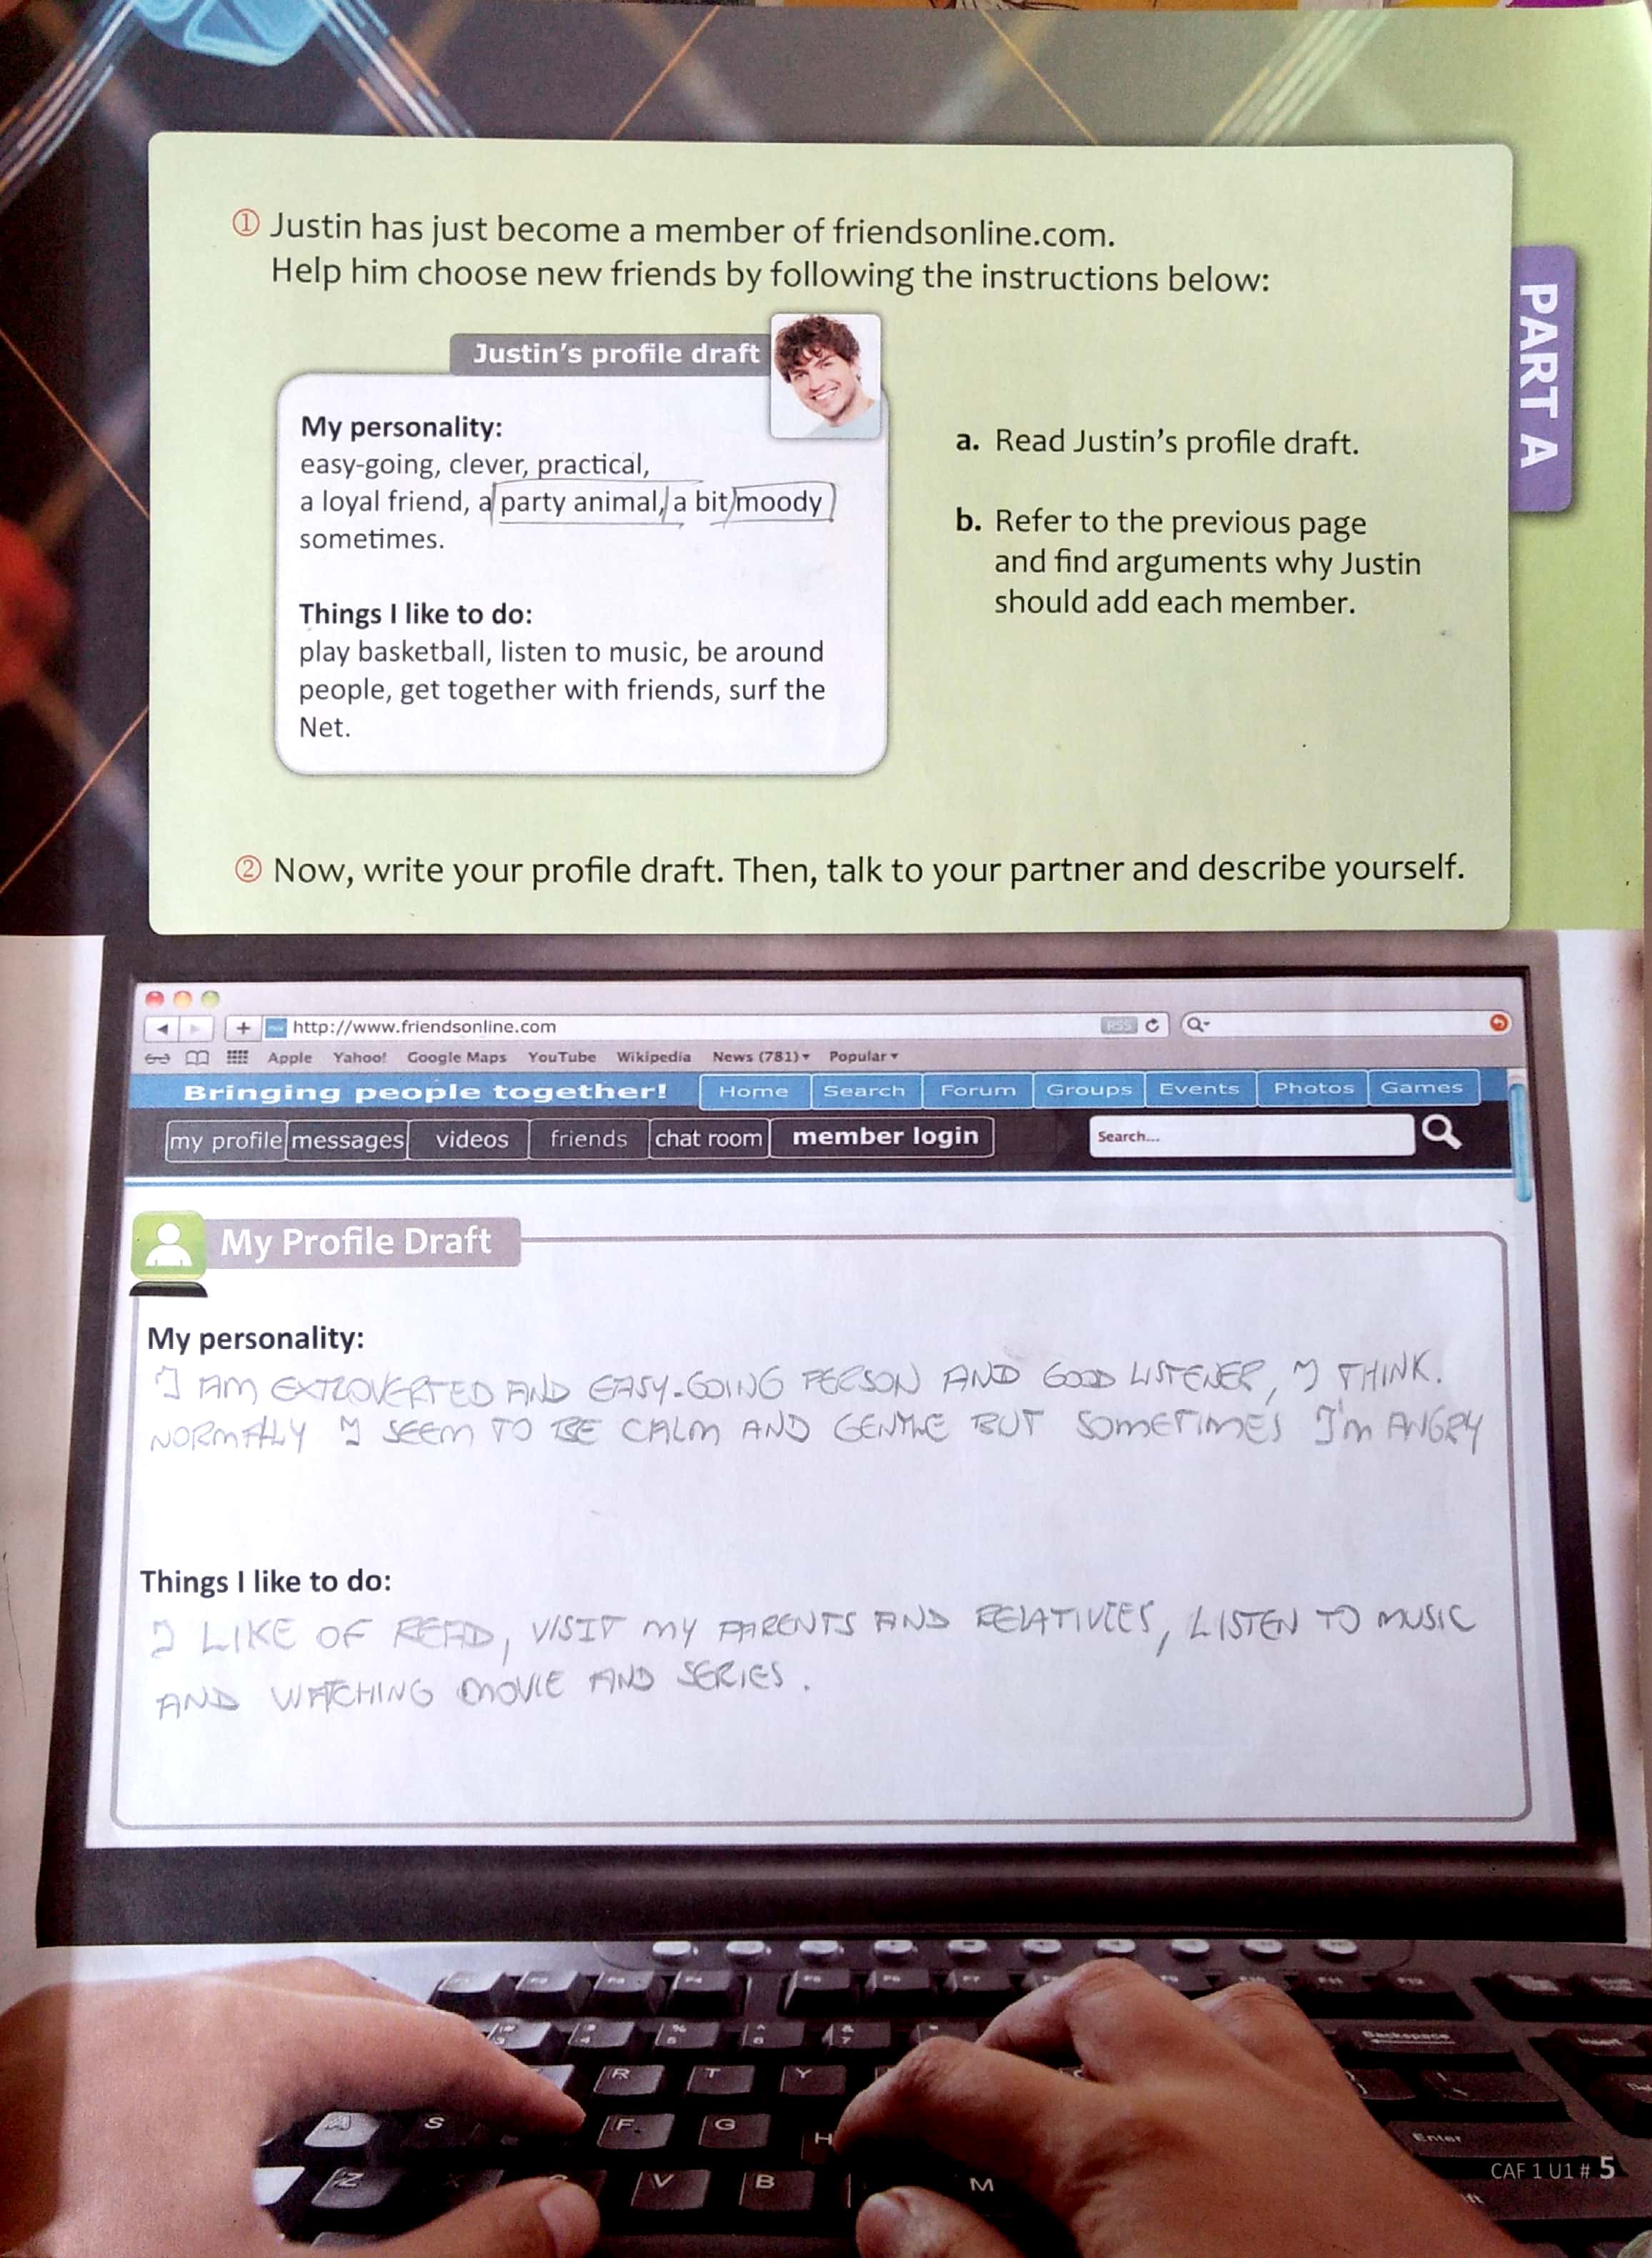 ① Justin has just become a member of friendsonline.com.
Help him choose new friends by following the instructions below:
Justin's profile draft
My personality:
easy-going, clever, practical,
a loyal friend, a party animal, a bit moody
sometimes.
Things I like to do:
play basketball, listen to music, be around
people, get together with friends, surf the
Net.
a. Read Justin's profile draft.
b. Refer to the previous page
and find arguments why Justin
should add each member.
PART A
② Now, write your profile draft. Then, talk to your partner and describe yourself.
http://www.friendsonline.com
RSS
Apple Yahoo! Google Maps YouTube Wikipedia News (781) Popular
Bringing people together! Home Search Forum Groups Events Photos Games
my profile messages videos friends chat room member login Search...
My Profile Draft
My personality:
I AM EXTROVERTED AND EASY-GOING PERSON AND GOOD LISTENER, I THINK.
NORMALLY I SEEM TO BE CALM AND GENTLE BUT SOMETIMES I'M ANGRY
Things I like to do:
I LIKE OF READ, VISIT MY PARENTS AND RELATIVIES, LISTEN TO MUSIC
AND WATCHING MOVIE AND SERIES.
Backspace
R T Y
A S F G H
Enter
Z V B M
CAF 1 U1 # 5